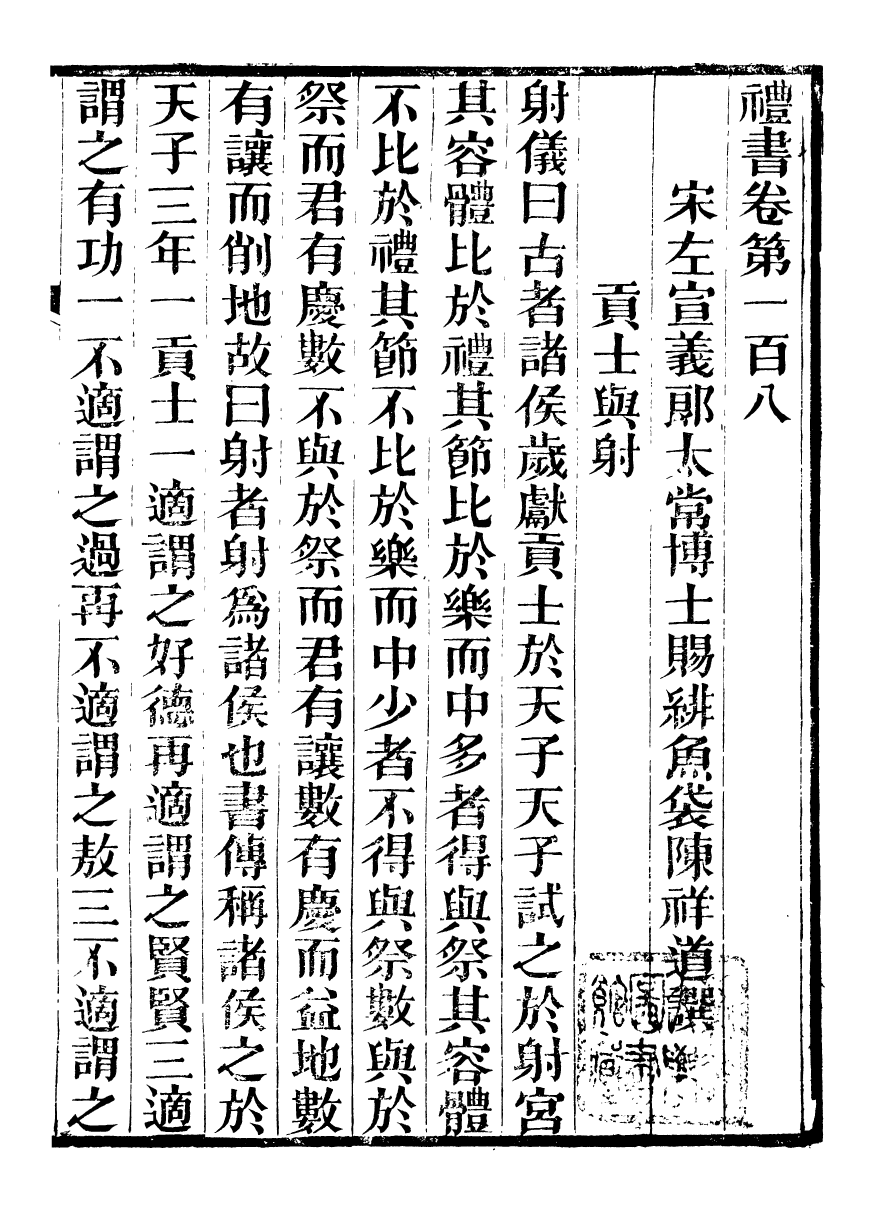 禮書卷第一百八
宋左宣義郎太常博士賜緋魚袋陳祥道譔
貢士與射
射儀曰古者諸侯歲獻貢士於天子天子試之於射宮
其容體比於禮其節比於樂而中多者得與祭其容體
不比於禮其節不比於樂而中少者不得與祭數與於
祭而君有慶數不與於祭而君有讓數有慶而益地數
有讓而削地故曰射者射爲諸侯也書傳稱諸侯之於
天子三年一貢士一適謂之好德再適謂之賢賢三適
謂之有功一不適謂之過再不適謂之敖三不適謂之